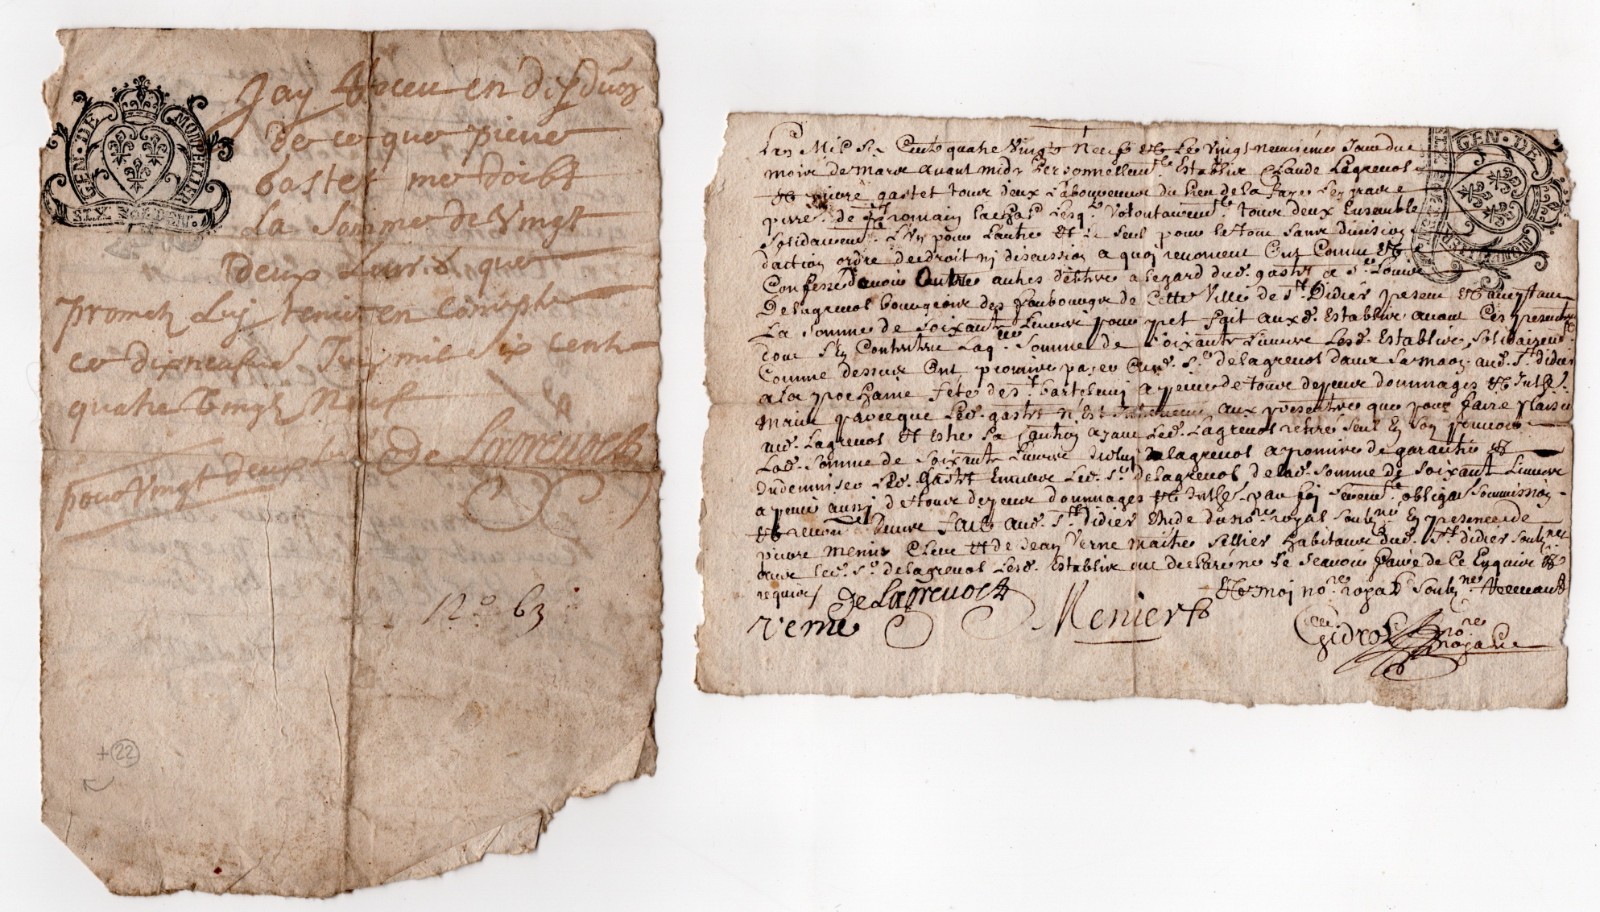 GEN · DE MONPELLIER
SIX DEN
Jay Receu en disduos
de ce que pierre
Gastet me doibt
La somme de Vingt
deux Livres que
prometz Luy tenir en Compte
ce dixneuf mil six cents
quatre Vingtz Neuf
pour Vingt deux de Lagrevol
12 63
+ 22
GEN · DE
Lan Mil Six Cents quatre Vingts Neuf et Le Vingt neuvieme Jour du
mois de Mars avant midy personnellemt Establis Claude Lagrevol
et pierre gastet tous deux Laboureurs du lieu de la
de St romain Lachas Lesqs Volontairement tous deux Ensemble
Solidairemt L'un pour Lautre et Le Seul pour Le tout Sans division
daction ordre de droit ny discussion a quoy renoncent Ont Comme
Confesse devoir Outre autres debtes a Legard dud. gastet a Sr Louis
Delagrevol bourgeois des faubourgs de Cette Ville de St Didier present et acceptant
La Somme de Soixante Livres pour pret fait auxd. Establis avant Ces presentes
dont Sen Contentent Laqle Somme de Soixante Livres Lesd. Establis Solidairemt
Comme dessus Ont promis payer aud. Sr delagrevol dans Sa maison aud. St didier
a La prochaine fete de St bartelemy a peine de tous depens dommages et
Mais parceque Led. gastet n'Est aux presentes que pour faire plaisir
aud. Lagrevol et Estre Sa Caution ayant Led. Lagrevol retire Seul
Lad. Somme de Soixante Livres Lagrevol a promis de garantir et
Indemniser Led. Gastet Envers Led. Sr delagrevol de Lad. Somme de Soixante Livres
a peine aussy de tous depens dommages et par foy Sermt obligaon Soumissions
et renonons Fait aud. St didier Etude du nore royal Soubzne En presence de
pierre Menier Clerc et de Jean Verne Maitre Sellier habitants dud. St didier Soubznes
avec Led. Sr delagrevol Lesd. Establis ont declare ne Scavoir Signer de Ce Enquis et
requis de Lagrevol Et moy nore royal Soubzne recevant
Verne Menier nore
royal